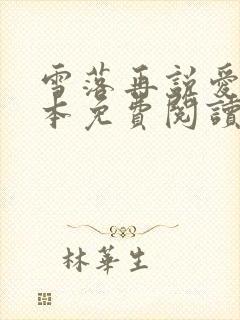 雪落再説愛
本免費閱讀
林華生